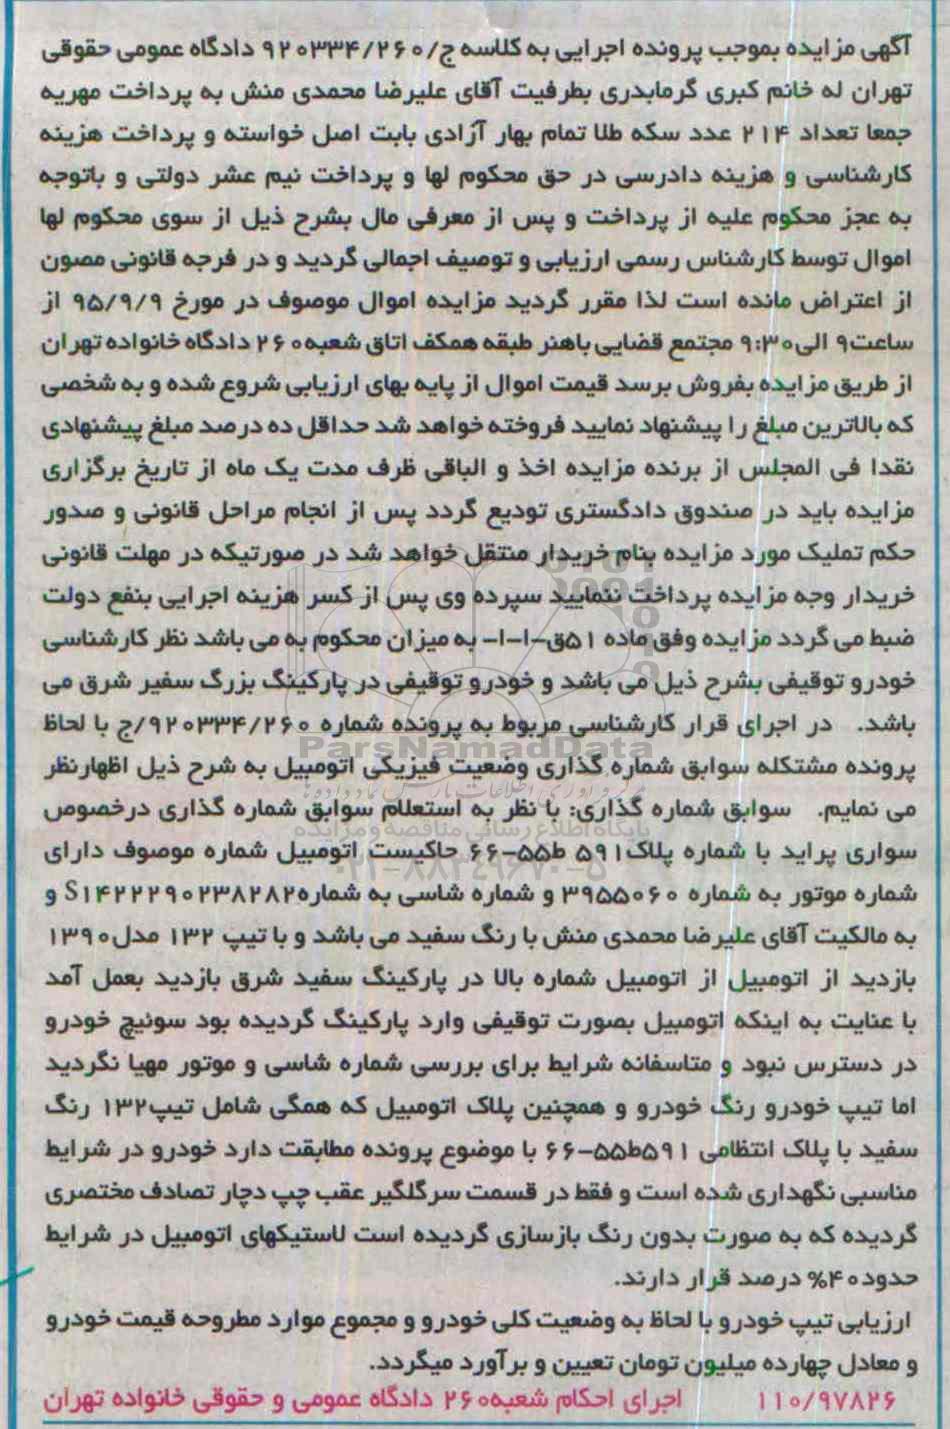 آگهی مزایده بموجب پرونده اجرایی به کلاسه ج/۹۲۰۳۳۴/۲۶۰ دادگاه عمومی حقوقی
تهران له خانم کبری گرمابدری بطرفیت آقای علیرضا محمدی منش به پرداخت مهریه
جمعا تعداد ۲۱۴ عدد سکه طلا تمام بهار آزادی بابت اصل خواسته و پرداخت هزینه
کارشناسی و هزینه دادرسی در حق محکوم لها و پرداخت نیم عشر دولتی و باتوجه
به عجز محکوم علیه از پرداخت و پس از معرفی مال بشرح ذیل از سوی محکوم لها
اموال توسط کارشناس رسمی ارزیابی و توصیف اجمالی گردید و در فرجه قانونی مصون
از اعتراض مانده است لذا مقرر گردید مزایده اموال موصوف در مورخ ۹۵/۹/۹ از
ساعت۹ الی۹:۳۰ مجتمع قضایی باهنر طبقه همکف اتاق شعبه۲۶۰ دادگاه خانواده تهران
از طریق مزایده بفروش برسد قیمت اموال از پایه بهای ارزیابی شروع شده و به شخصی
که بالاترین مبلغ را پیشنهاد نمایید فروخته خواهد شد حداقل ده درصد مبلغ پیشنهادی
نقدا فی المجلس از برنده مزایده اخذ و الباقی ظرف مدت یک ماه از تاریخ برگزاری
مزایده باید در صندوق دادگستری تودیع گردد پس از انجام مراحل قانونی و صدور
حکم تملیک مورد مزایده بنام خریدار منتقل خواهد شد در صورتیکه در مهلت قانونی
خریدار وجه مزایده پرداخت ننمایید سپرده وی پس از کسر هزینه اجرایی بنفع دولت
ضبط می گردد مزایده وفق ماده ۵۱ق-ا-ا- به میزان محکوم به می باشد نظر کارشناسی
خودرو توقیفی بشرح ذیل می باشد و خودرو توقیفی در پارکینگ بزرگ سفیر شرق می
باشد. در اجرای قرار کارشناسی مربوط به پرونده شماره ۹۲۰۳۳۴/۲۶۰/ج با لحاظ
ParsNamadData
پرونده مشتکله سوابق شماره گذاری وضعیت فیزیکی اتومبیل به شرح ذیل اظهارنظر
می نمایم. سوابق شماره گذاری: با نظر به استعلام سوابق شماره گذاری درخصوص
پایگاه اطلاع رسانی مناقصه و مزایده
سواری پراید با شماره پلاک۵۹۱ ط۵۵-۶۶ حاکیست اتومبیل شماره موصوف دارای
۰۲۱-۸۸۳۴۹۶۷۰-۵
شماره موتور به شماره ۳۹۵۵۰۶۰ و شماره شاسی به شمارهS۱۴۲۲۲۹۰۲۳۸۲۸۲ و
به مالکیت آقای علیرضا محمدی منش با رنگ سفید می باشد و با تیپ ۱۳۲ مدل۱۳۹۰
بازدید از اتومبیل از اتومبیل شماره بالا در پارکینگ سفید شرق بازدید بعمل آمد
با عنایت به اینکه اتومبیل بصورت توقیفی وارد پارکینگ گردیده بود سوئیچ خودرو
در دسترس نبود و متاسفانه شرایط برای بررسی شماره شاسی و موتور مهیا نگردید
اما تیپ خودرو رنگ خودرو و همچنین پلاک اتومبیل که همگی شامل تیپ۱۳۲ رنگ
سفید با پلاک انتظامی ۵۹۱ط۵۵-۶۶ با موضوع پرونده مطابقت دارد خودرو در شرایط
مناسبی نگهداری شده است و فقط در قسمت سرگلگیر عقب چپ دچار تصادف مختصری
گردیده که به صورت بدون رنگ بازسازی گردیده است لاستیکهای اتومبیل در شرایط
حدود۴۰% درصد قرار دارند.
ارزیابی تیپ خودرو با لحاظ به وضعیت کلی خودرو و مجموع موارد مطروحه قیمت خودرو
و معادل چهارده میلیون تومان تعیین و برآورد میگردد.
۱۱۰/۹۷۸۲۶ اجرای احکام شعبه۲۶۰ دادگاه عمومی و حقوقی خانواده تهران